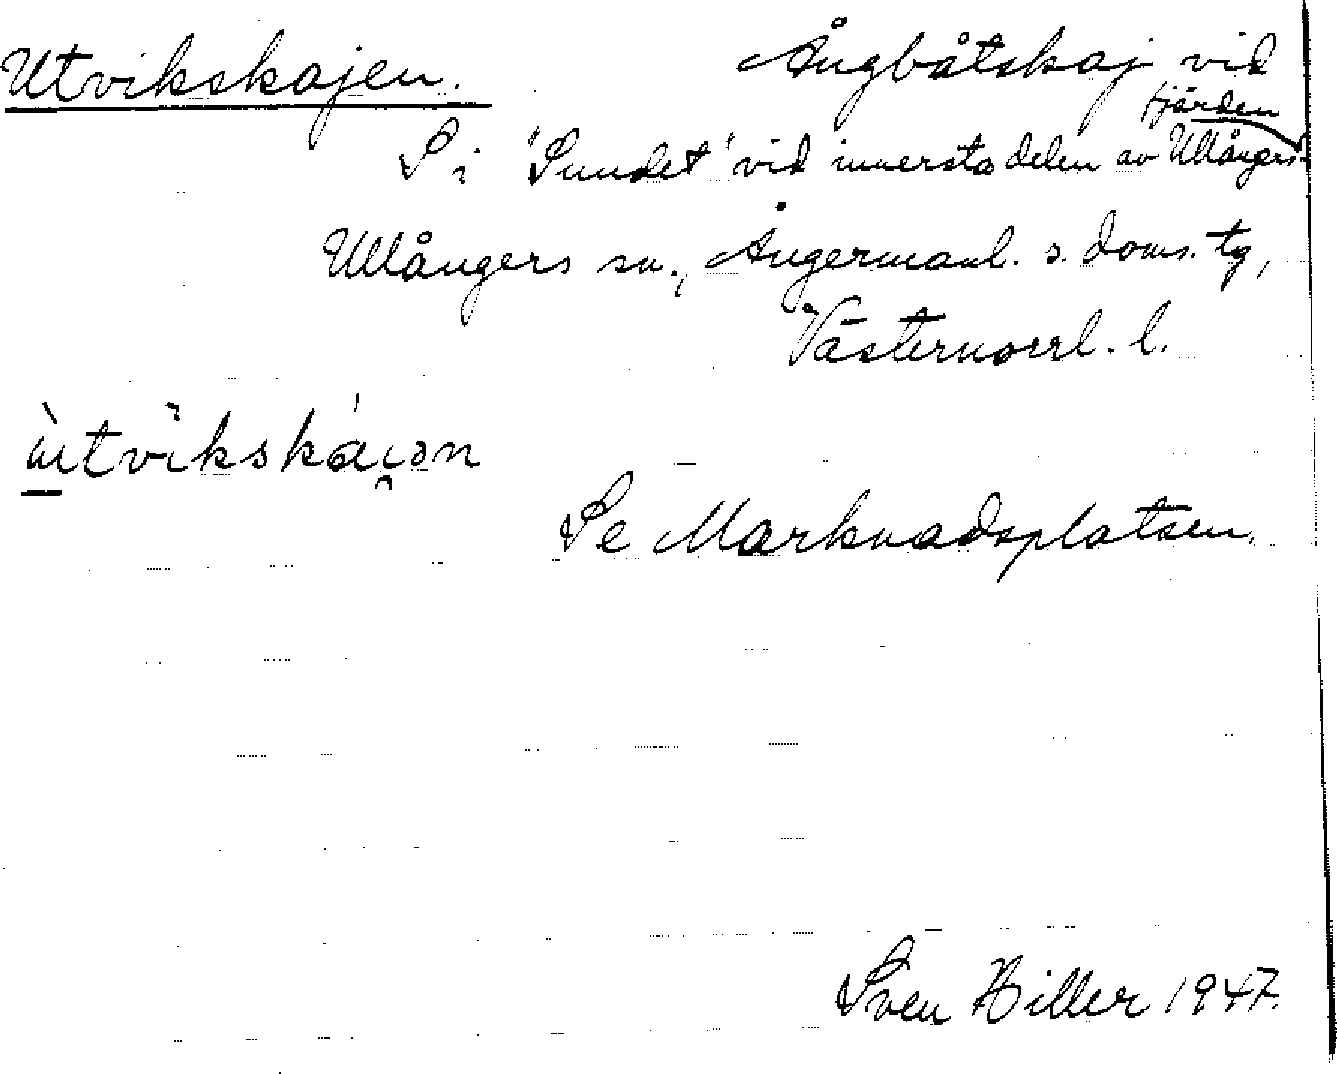 Utvikskajen. Ångbåtskaj vid
S i 'Sundet' vid innersta delen av Ullångers-
fjärden
Ullångers sn., Ångermanl. s. doms. tg,
Västernorrl. l.
Se Marknadsplatsen.
Sven Hiller 1947.